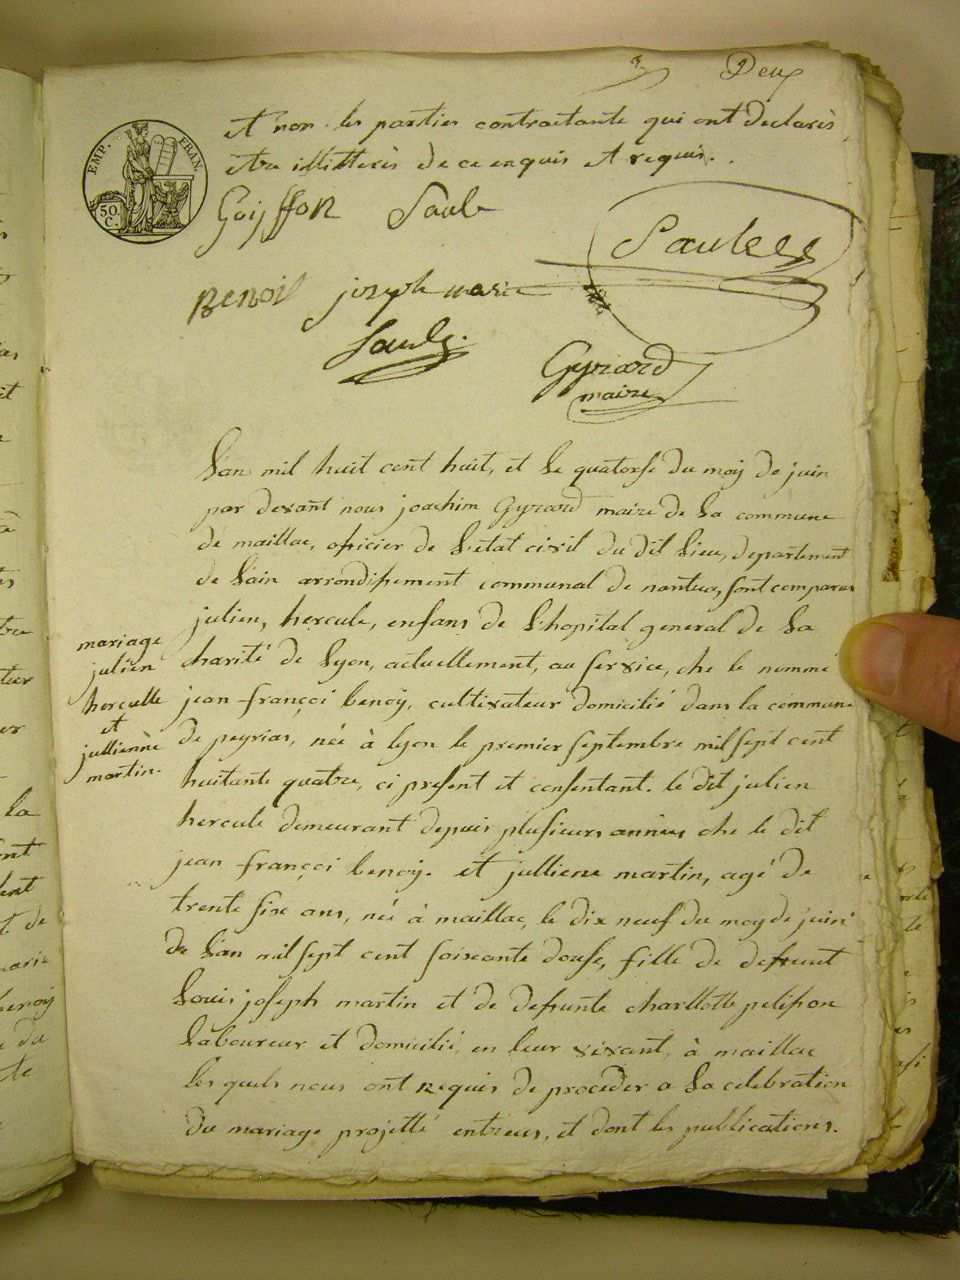 Deux
EMP. FRAN.
50.
C.
et non les parties contractante qui ont declarés
être illitterés de ce enquis et requis.
Goiffon Saule
Saules
Benoit joseph marie
Saule.
Gyrard
maire
L'an mil huit cent huit, et le quatorse du moy de juin
par devant nous joachim Gyrard maire de La commune
de maillac, oficier de L'etat civil du dit Lieu, departement
de L'ain arrondissement communal de nantua, sont comparus
julien, hercule, enfans de L'hopital general de La
charité de Lyon, actuellement, au service, che le nommé
jean françoi benoy, cultivateur domicilié dans la commune
de peyrias, née à lyon le premier septembre mil sept cent
huitante quatre, ci present et consentant. le dit julien
hercule demeurant depuis plusieurs années che le dit
jean françoi benoy. et julliene martin, agé de
trente six ans, née à maillac, le dix neuf du moy de juin
de L'an mil sept cent soixante douse, fille de defunt
Louis joseph martin et de defunte charllotte pelisson
Laboureur et domicilié, en leur vivant, à maillac
les quels nous ont requis de proceder a La celebration
du mariage projetté entreus, et dont les publications.
mariage
julien
herculle
et
jullienne
martin.